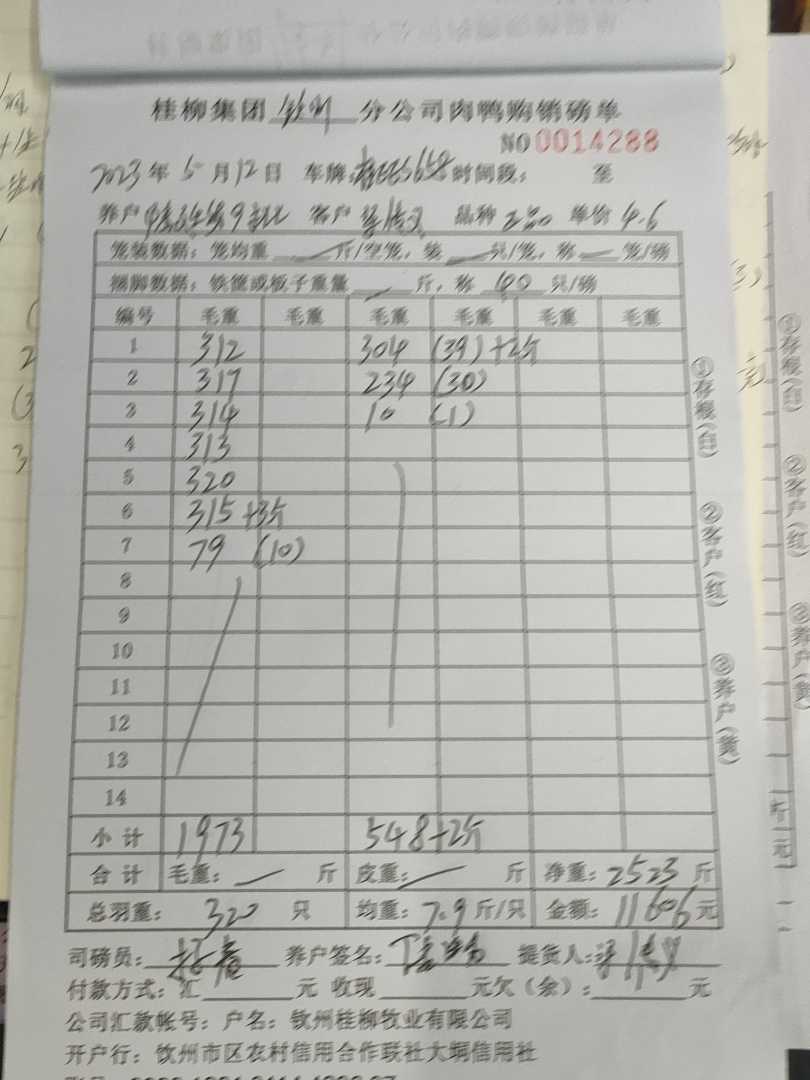 桂柳集团 钦州 分公司肉鸭购销磅单
NO 0014288
2023年 5 月 12 日 车牌: 时间段: 至
养户 客户 品种 单价 4.6
笼装数据: 笼均重 斤/空笼, 装 只/笼, 称 笼/磅
捆脚数据: 铁筐或板子重量 斤, 称 40 只/磅
编号 毛重 毛重 毛重 毛重 毛重 毛重
1 312 304 (39) +2斤
2 317 234 (30)
3 314 10 (1)
4 313
5 320
6 315 +3斤
7 79 (10)
8
9
10
11
12
13
14
小计 1973 548+2斤
合计 毛重: 斤 皮重: 斤 净重: 2523 斤
总羽重: 320 只 均重: 7.9 斤/只 金额: 11606 元
司磅员: 养户签名: 提货人:
付款方式: 汇 元 收现 元欠(余): 元
公司汇款帐号: 户名: 钦州桂柳牧业有限公司
开户行: 钦州市区农村信用合作联社大垌信用社
①存根(白)
②客户(红)
③养户(黄)
①存根(白)
②客户(红)
③养户(黄)